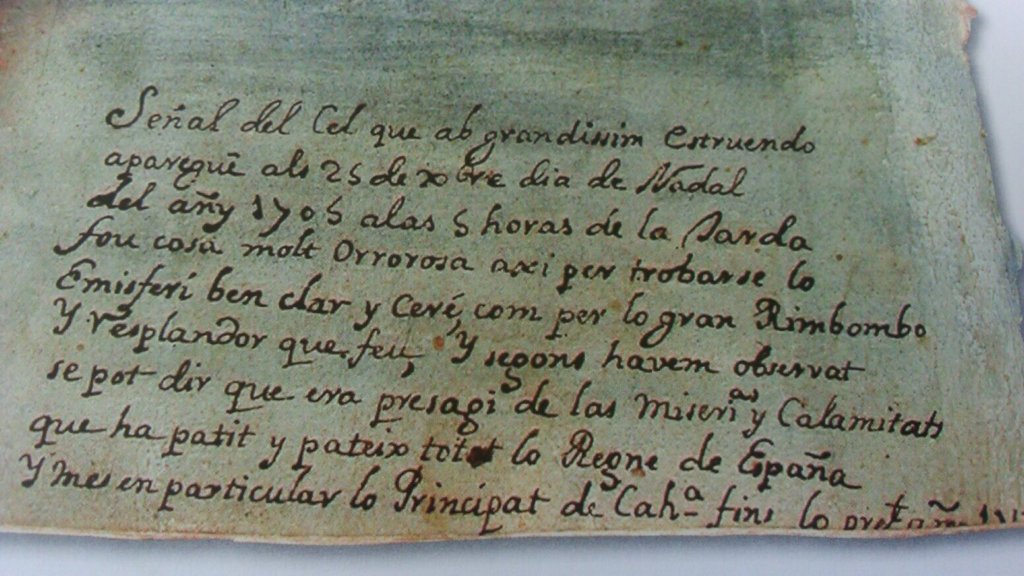 Señal del Cel que ab grandissim estruendo
aparegué als 25 de xbre dia de Nadal
del añy 1705 alas 5 horas de la Tarda
fou cosa molt Orrorosa axi per trobarse lo
Emisferi ben clar y Ceré, com per lo gran Rimbombo
Y resplandor que feu, Y segons havem observat
se pot dir que era presagi de las Miserias y Calamitats
que ha patit y pateix tot lo Regne de España
Y mes en particular lo Principat de Cahª fins lo prest añy